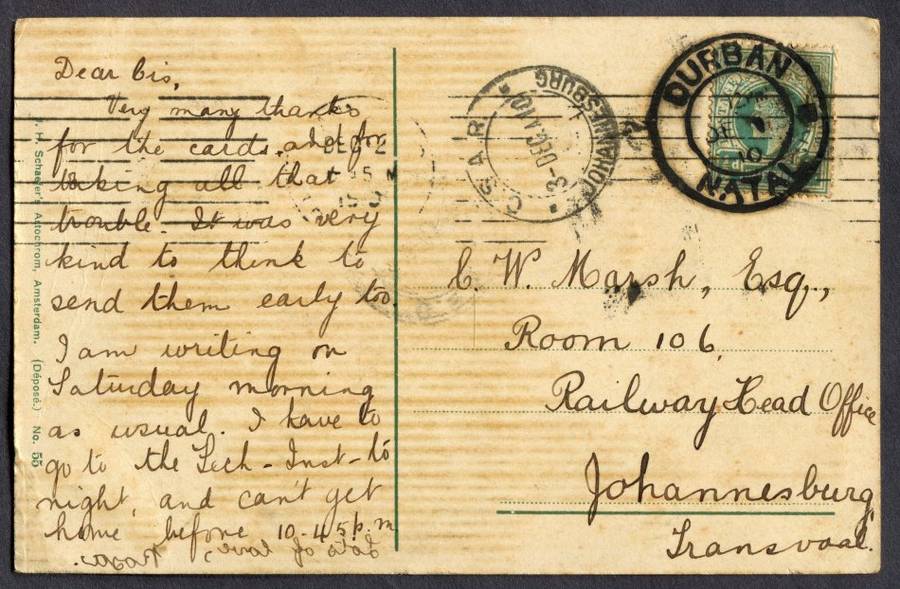 Dear Cis,
Very many thanks
for the cards, and for
taking all that
trouble. It was very
kind to think to
send them early too.
I am writing on
Saturday morning
as usual. I have to
go to the Tech-Inst-to
night, and can't get
home before 10.45 p.m
Lots of love,
J. H. Schaefer's Autochrom, Amsterdam. (Déposé.) No. 55
JOHANNESBURG
C.S.A.R.
3 DEC
DURBAN
NATAL
C. W. Marsh, Esq.,
Room 106
Railway Head Office
Johannesburg
Transvaal.